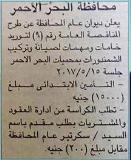 محافظة البحر الأحمر
يعلن ديوان عام المحافظة عن طرح
المناقصة العامة رقم (٩) لتوريد
خامات ومهمات لصيانة وتركيب
الشمندورات بمحميات البحر الأحمر
جلسة ٢٠١٧/٥/١٥
- التأمين الابتدائى مبلغ
(١٥٠٠٠) جنيه
- تطلب الكراسة من إدارة العقود
والمشتريات بطلب مقدم باسم
السيد / سكرتير عام المحافظة
مقابل مبلغ (٢٠٠) جنيه